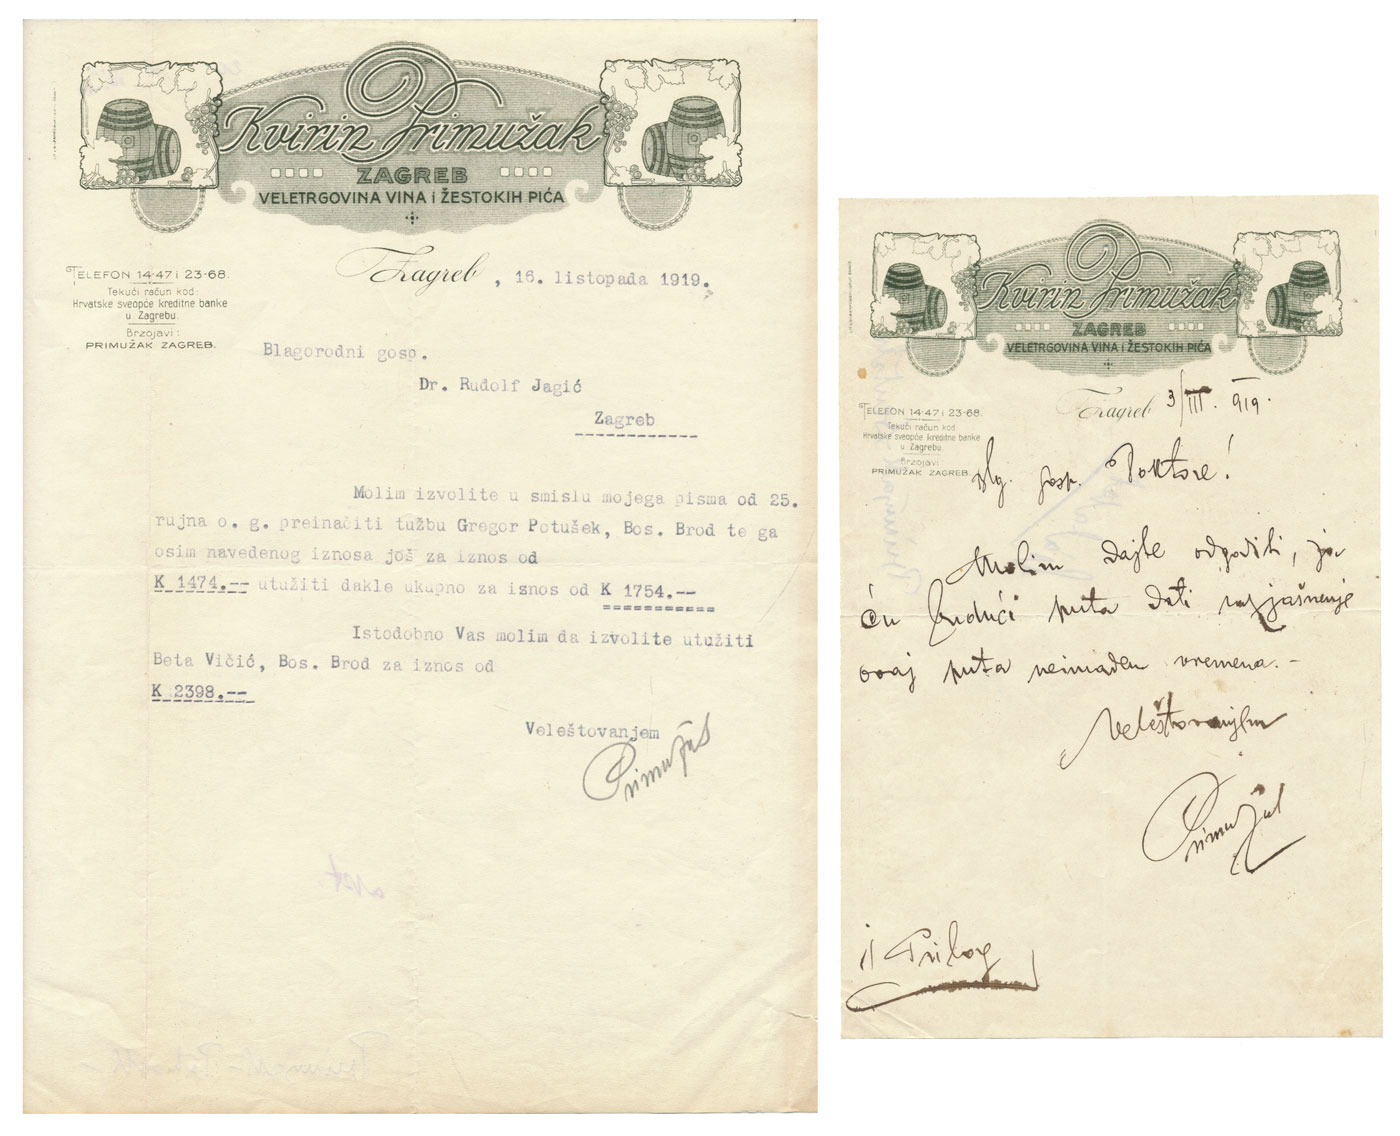 Kvirin Primužak
ZAGREB
VELETRGOVINA VINA i ŽESTOKIH PIĆA
TELEFON 14-47 i 23-68.
Tekući račun kod:
Hrvatske sveopće kreditne banke
u Zagrebu.
Brzojavi:
PRIMUŽAK ZAGREB.
Zagreb, 16. listopada 1919.
Blagorodni gosp.
Dr. Rudolf Jagić
Zagreb
Molim izvolite u smislu mojega pisma od 25.
rujna o. g. preinačiti tužbu Gregor Potušek, Bos. Brod te ga
osim navedenog iznosa još za iznos od
K 1474.-- utužiti dakle ukupno za iznos od K 1754.--
Istodobno Vas molim da izvolite utužiti
Beta Vičić, Bos. Brod za iznos od
K 2398.--
Veleštovanjem
Primužak
Kvirin Primužak
ZAGREB
VELETRGOVINA VINA i ŽESTOKIH PIĆA
TELEFON 14-47 i 23-68.
Tekući račun kod
Hrvatske sveopće kreditne banke
u Zagrebu
Brzojavi:
PRIMUŽAK ZAGREB.
Zagreb 3/III. 919.
Blg. gosp. Doktore!
Molim dajte odgoditi, ja
ću budući puta dati razjašnenje
ovaj puta neimadem vremena. -
Veleštovanjem
Primužak
1 Prilog